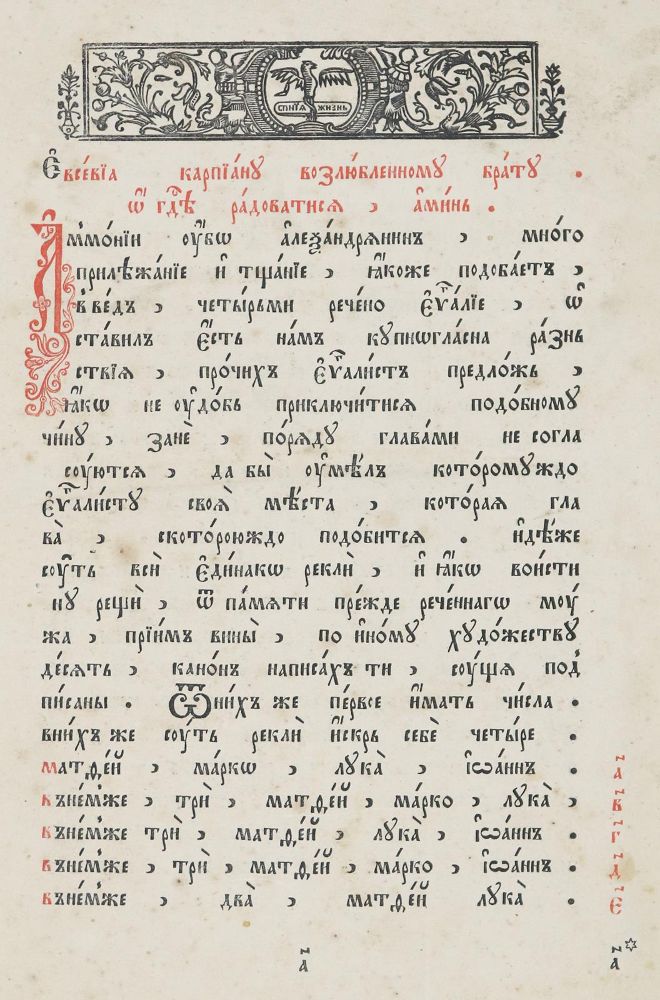 СПНІѦ ЖИЗНЬ
Є҆ѵсе́вїа карпїа́нꙋ возлю́бленномꙋ бра́тꙋ .
ѡ҆ гдⷭ҇ѣ ра́доватисѧ , а҆ми́нь .
А҆ммо́нїи ᲂу҆́бѡ а҆леѯа́ндрѧнинъ , мно́го
прилѣжа́нїе и҆ тща́нїе , ꙗ҆́коже подоба́етъ ,
в̾ве́дъ , четы́рьми рече́но є҆ѵⷢ҇а́лїе , ѡ҆
ста́вилъ є҆́сть на́мъ кꙋпнѡгла́сна ра́знь
ствїѧ , про́чихъ є҆ѵⷢ҇али́стъ предло́жь ,
ꙗ҆́кѡ не ᲂу҆до́бь приключи́тисѧ подо́бномꙋ
чи́нꙋ , занѐ , по́рѧдꙋ глава́ми не согла
сꙋ́ютсѧ , да вы̀ ᲂу҆мѣ́лъ кото́ромꙋждо
є҆ѵⷢ҇али́стꙋ своѧ̀ мѣ́ста , кото́раѧ гла
ва̀ , ското́роюждо подо́битсѧ . и҆дѣ́же
сꙋ́ть всѝ є҆ди́накѡ реклѝ , и҆ ꙗ҆́кѡ вои́сти
нꙋ рещѝ , ѿ па́мѧти пре́жде рече́ннагѡ моꙋ́
жа , прїи́мъ вины̀ , по и҆но́мꙋ хꙋдо́жествꙋ
де́сѧть , кано́нъ написа́хъ ти , сꙋ́щѧ под̾
пи́саны . Ѿни́хъ же пе́рвое и҆́мать чи́сла .
вни́хъ же сꙋ́ть реклѝ и҆́скрь себѐ четы́ре .
матѳе́й , ма́ркѡ , лꙋка̀ , і҆ѡа́ннъ . а҃
въне́мже , трѝ , матѳе́й , ма́рко , лꙋка̀ , в҃
въне́мже трѝ , матѳе́й , лꙋка̀ , і҆ѡа́ннъ . г҃
въне́мже , трѝ , матѳе́й , ма́рко , і҆ѡа́ннъ . д҃
въне́мже , два̀ , матѳе́й лꙋка̀ . є҃
а҃ а҃